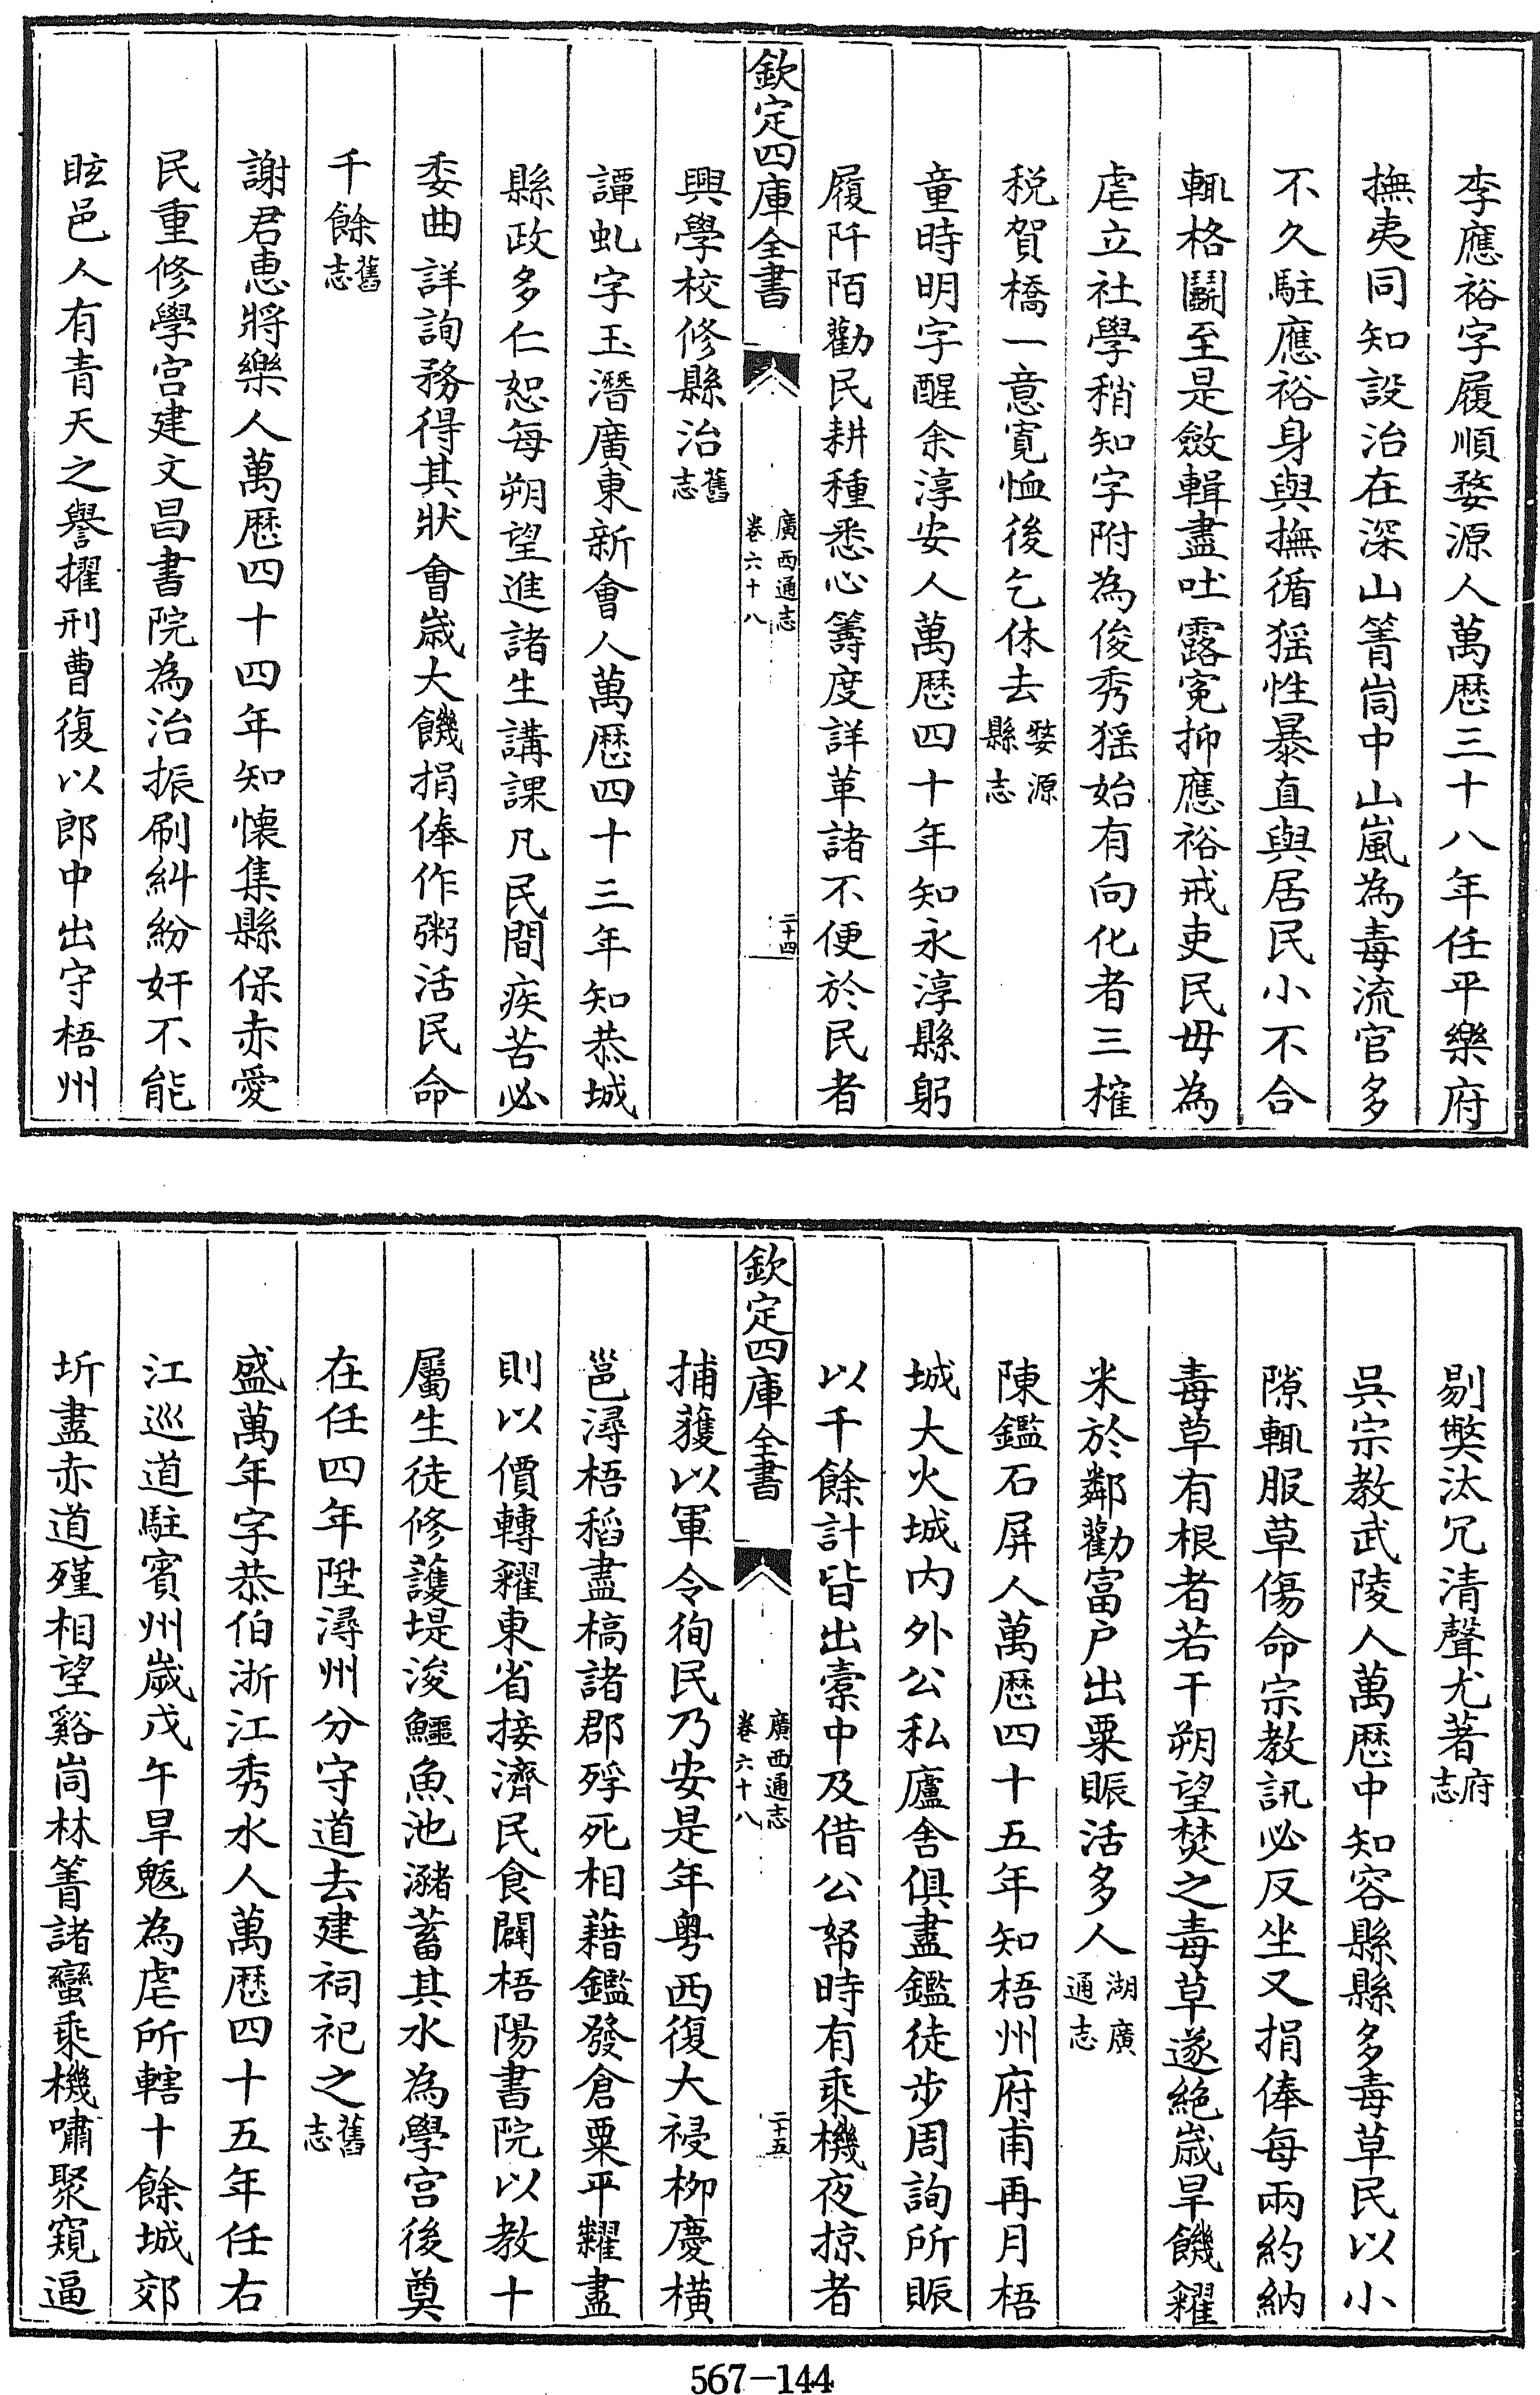 李應裕字履順婺源人萬歴三十八年任平樂府
撫夷同知設治在深山箐峝中山嵐為毒流官多
不久駐應裕身與撫循猺性暴直與居民小不合
輒格鬭至是斂輯盡吐露寃抑應裕戒吏民毋為
虐立社學稍知字附為俊秀猺始有向化者三榷
税賀橋一意寛恤後乞休去婺源縣志
童時明字醒余淳安人萬歴四十年知永淳縣躬
履阡陌勸民耕種悉心籌度詳革諸不便於民者
欽定四庫全書
廣西通志
卷六十八
二十四
興學校修縣治舊志
譚虬字玉潛廣東新會人萬歴四十三年知恭城
縣政多仁恕每朔望進諸生講課凡民間疾苦必
委曲詳詢務得其狀會歲大饑捐俸作粥活民命
千餘舊志
謝君惠將樂人萬歴四十四年知懷集縣保赤愛
民重修學宫建文昌書院為治振刷糾紛奸不能
眩邑人有青天之譽擢刑曹復以郎中出守梧州
剔獘汰冗清聲尤著府志
吳宗教武陵人萬歴中知容縣縣多毒草民以小
隙輒服草傷命宗教訊必反坐又捐俸每兩約納
毒草有根者若干朔望焚之毒草遂絶歲旱饑糴
米於鄰勸富户出粟賑活多人湖廣通志
陳鑑石屏人萬歴四十五年知梧州府甫再月梧
城大火城内外公私廬舍俱盡鑑徒步周詢所賑
以千餘計皆出槖中及借公帑時有乘機夜掠者
欽定四庫全書
廣西通志
卷六十八
二十五
捕獲以軍令徇民乃安是年粤西復大祲柳慶橫
邕潯梧稻盡槁諸郡殍死相藉鑑發倉粟平糶盡
則以價轉糴東省接濟民食闢梧陽書院以教十
屬生徒修護堤浚鱷魚池瀦蓄其水為學宫後奠
在任四年陞潯州分守道去建祠祀之舊志
盛萬年字恭伯浙江秀水人萬歴四十五年任右
江巡道駐賓州歲戊午旱魃為虐所轄十餘城郊
圻盡赤道殣相望谿峝林箐諸蠻乘機嘯聚窺逼
567-144